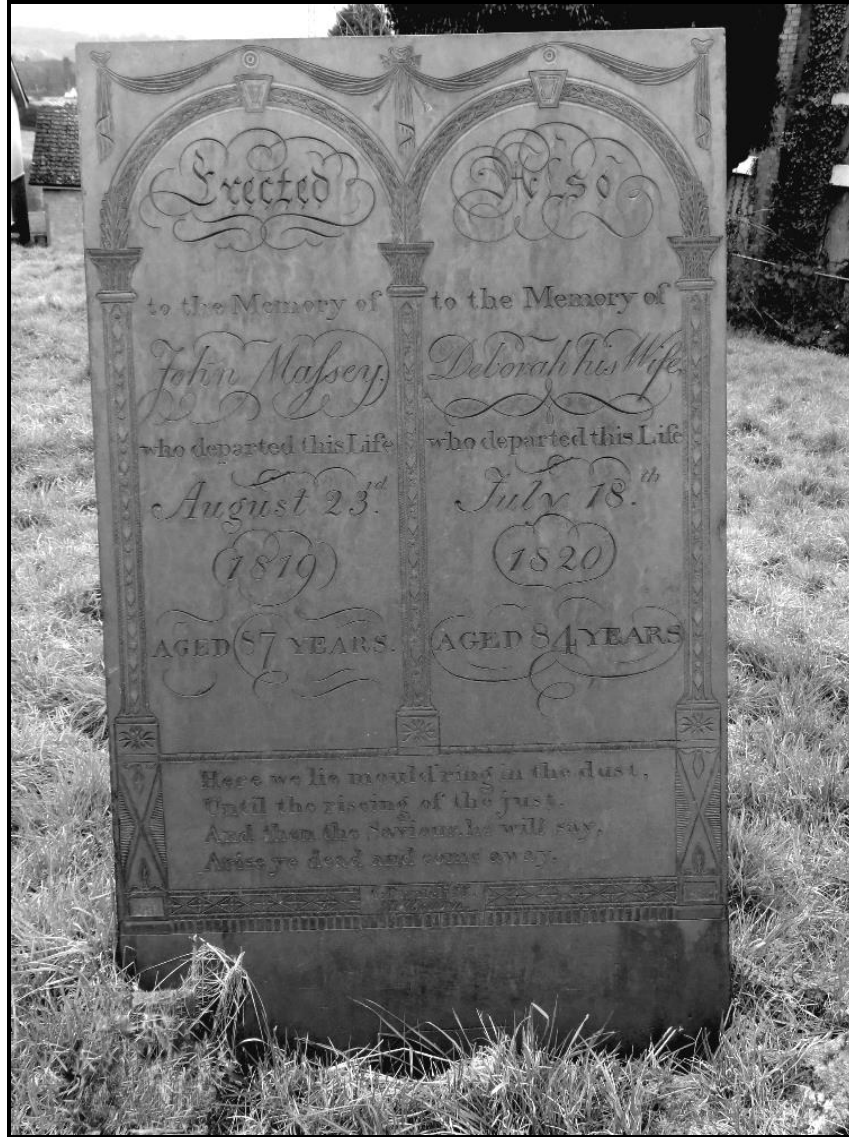 Erected
to the Memory of
John Maſsey.
who departed this Life
August 23.rd
1819
AGED 87 YEARS.
Also
to the Memory of
Deborah his Wife.
who departed this Life
July 18.th
1820
AGED 84 YEARS
Here we lie mould'ring in the dust,
Until the riseing of the just.
And then the Saviour, he will say,
Arise ye dead and come away.